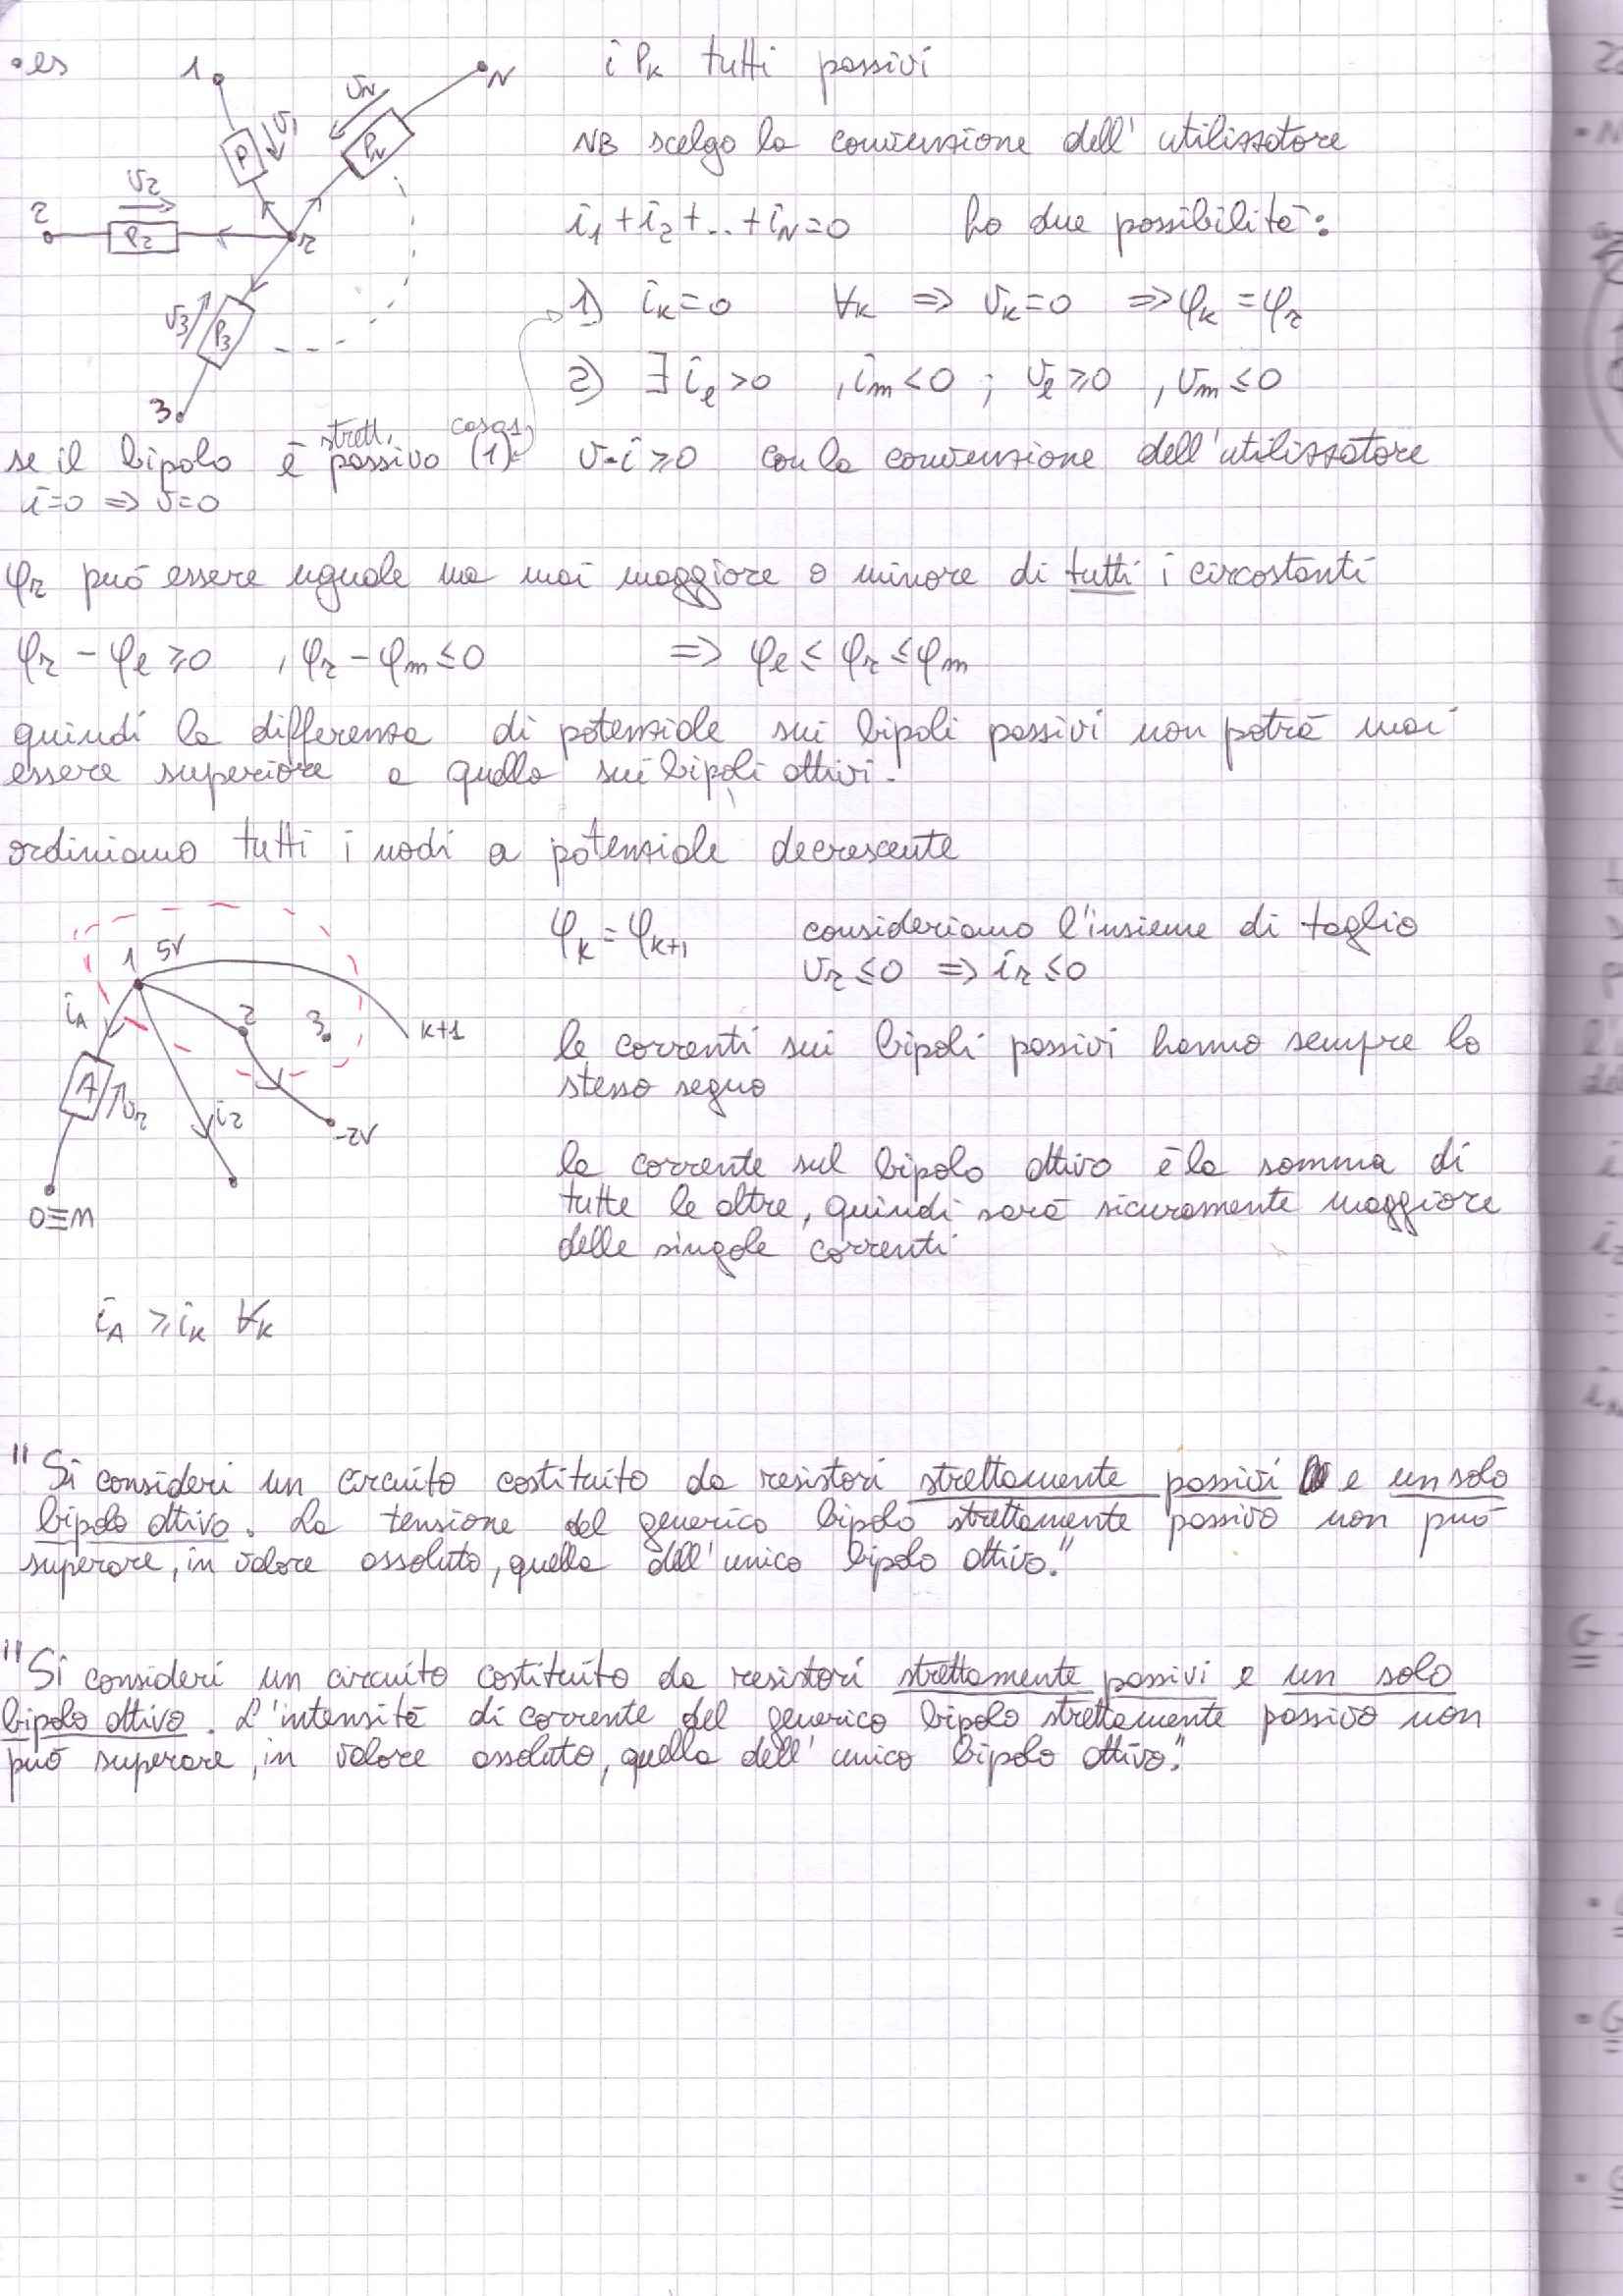 • es
1
N
i Pk tutti passivi
v1
vN
P
PN
NB scelgo la convenzione dell' utilizzatore
v2
2
P2
r
i1+i2+..+iN=0 ho due possibilità:
v3
P3
3
1) ik=0 ∀k ⇒ vk=0 ⇒ φk=φr
2) ∃ iℓ>0 , im<0 ; vℓ≥0 , vm≤0
strett. caso 1
se il bipolo è passivo (1) v·i≥0 con la convenzione dell'utilizzatore
i=0 ⇒ v=0
φr può essere uguale ma mai maggiore o minore di tutti i circostanti
φr - φℓ ≥0 , φr - φm ≤ 0 ⇒ φℓ ≤ φr ≤ φm
quindi la differenza di potenziale sui bipoli passivi non potrà mai
essere superiore a quella sui bipoli attivi.
ordiniamo tutti i nodi a potenziale decrescente
φk = φk+1 consideriamo l'insieme di taglio
vr ≤0 ⇒ ir ≤0
1 5V
iA
2
3
k+1
A
vr
i2
-2V
0≡M
le correnti sui bipoli passivi hanno sempre lo
stesso segno
la corrente sul bipolo attivo è la somma di
tutte le altre, quindi sarà sicuramente maggiore
delle singole correnti
iA ≥ ik ∀k
"Si consideri un circuito costituito da resistori strettamente passivi e un solo
bipolo attivo. La tensione del generico bipolo strettamente passivo non può
superare, in valore assoluto, quella dell'unico bipolo attivo."
"Si consideri un circuito costituito da resistori strettamente passivi e un solo
bipolo attivo. L'intensità di corrente del generico bipolo strettamente passivo non
può superare, in valore assoluto, quella dell'unico bipolo attivo."